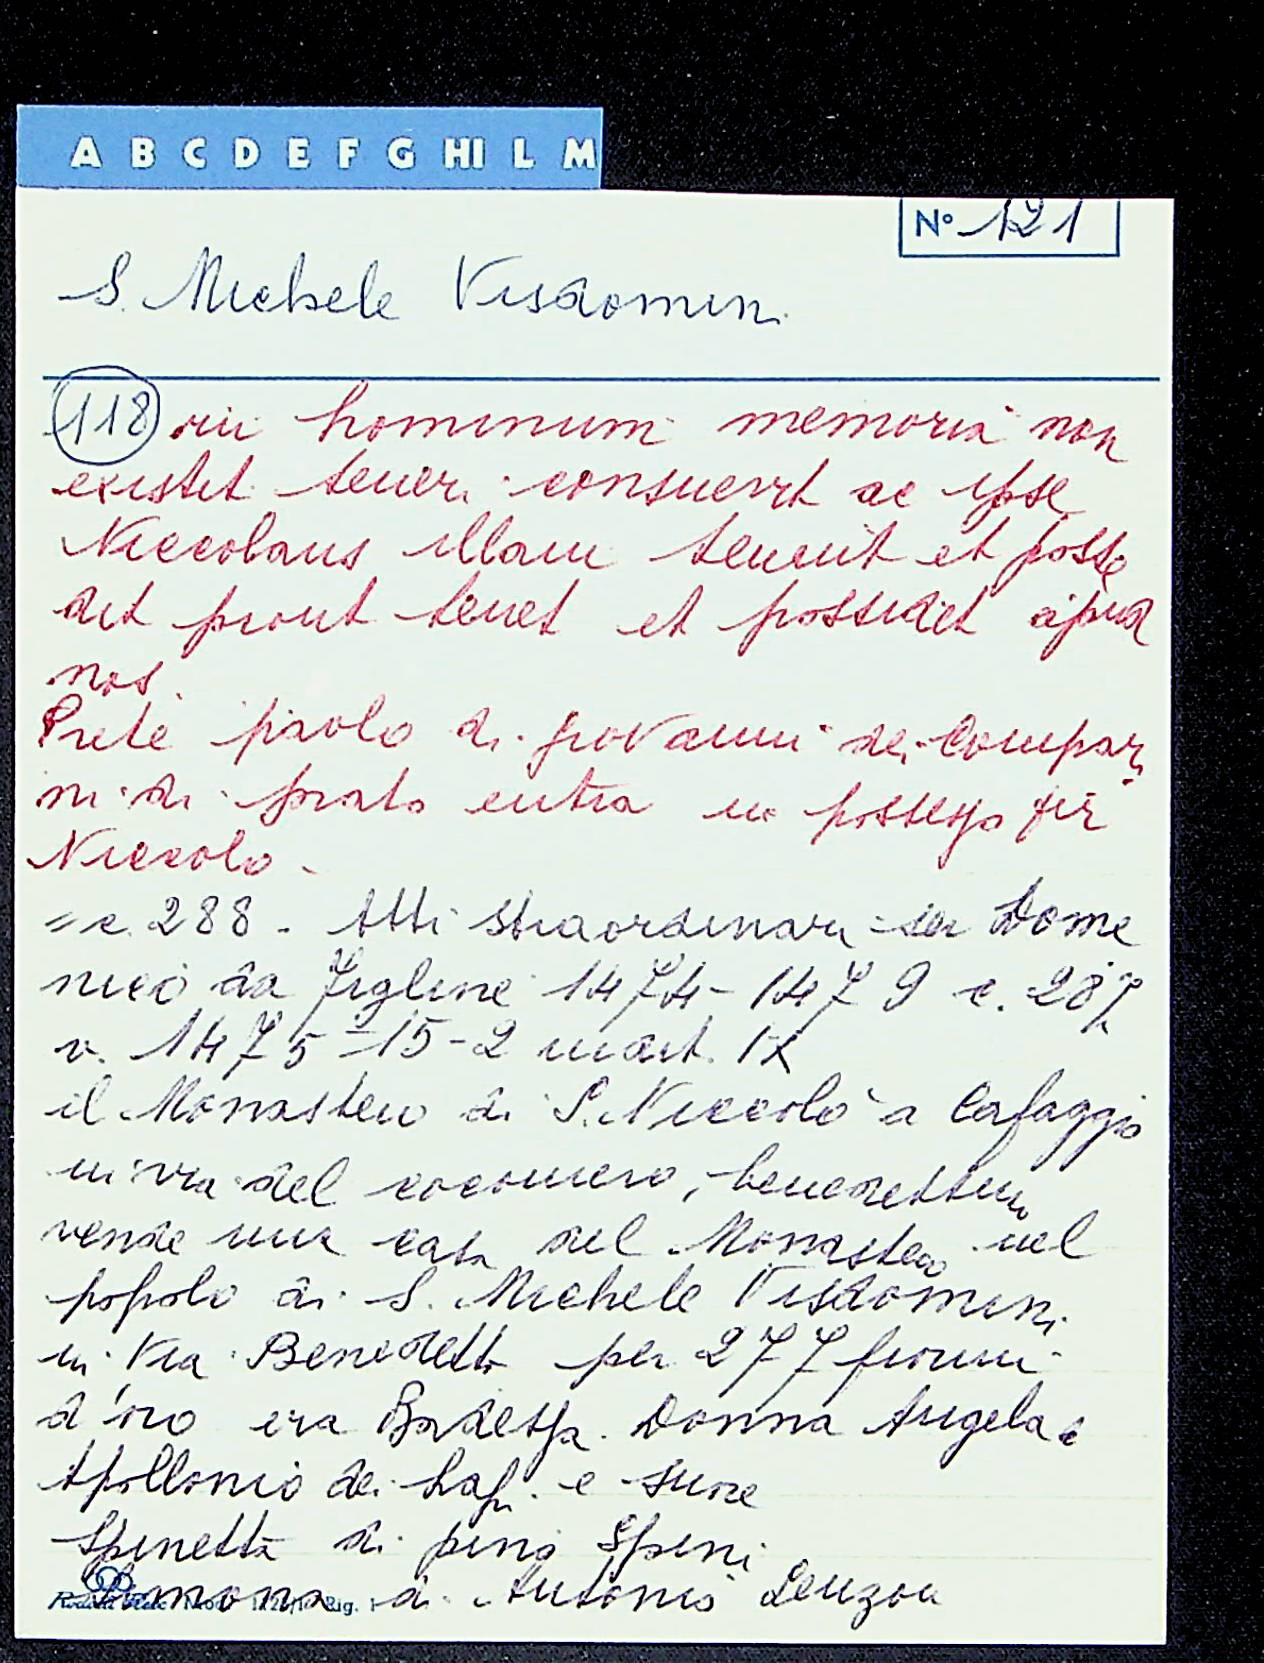 A B C D E F G HI L M
N° 121
S. Michele Visdomini
118 rii hominum memoria non
existit teneri consuevit ac ipse
Niccolaus illam tenuit et posse
dit prout tenet et possidet apud
nos.
Prete paolo di giovanni dei Compari
ni di prato entra in possesso per
Niccolo -
= c. 288 - Atti straordinari ser Dome
nico da Figline 1474-1479 c. 287
v. 1475-15-2 ind. IX
il Monastero di S. Niccolò a Cafaggio
in via del cocomero, benedettino
vende una casa del Monastero nel
popolo di S. Michele Visdomini
in Via Benedetta per 277 fiorini
d'oro era Badessa Donna Angela di
Apollonio dei e suore
Spinetta di pino Spini
di Antonio Lenzon